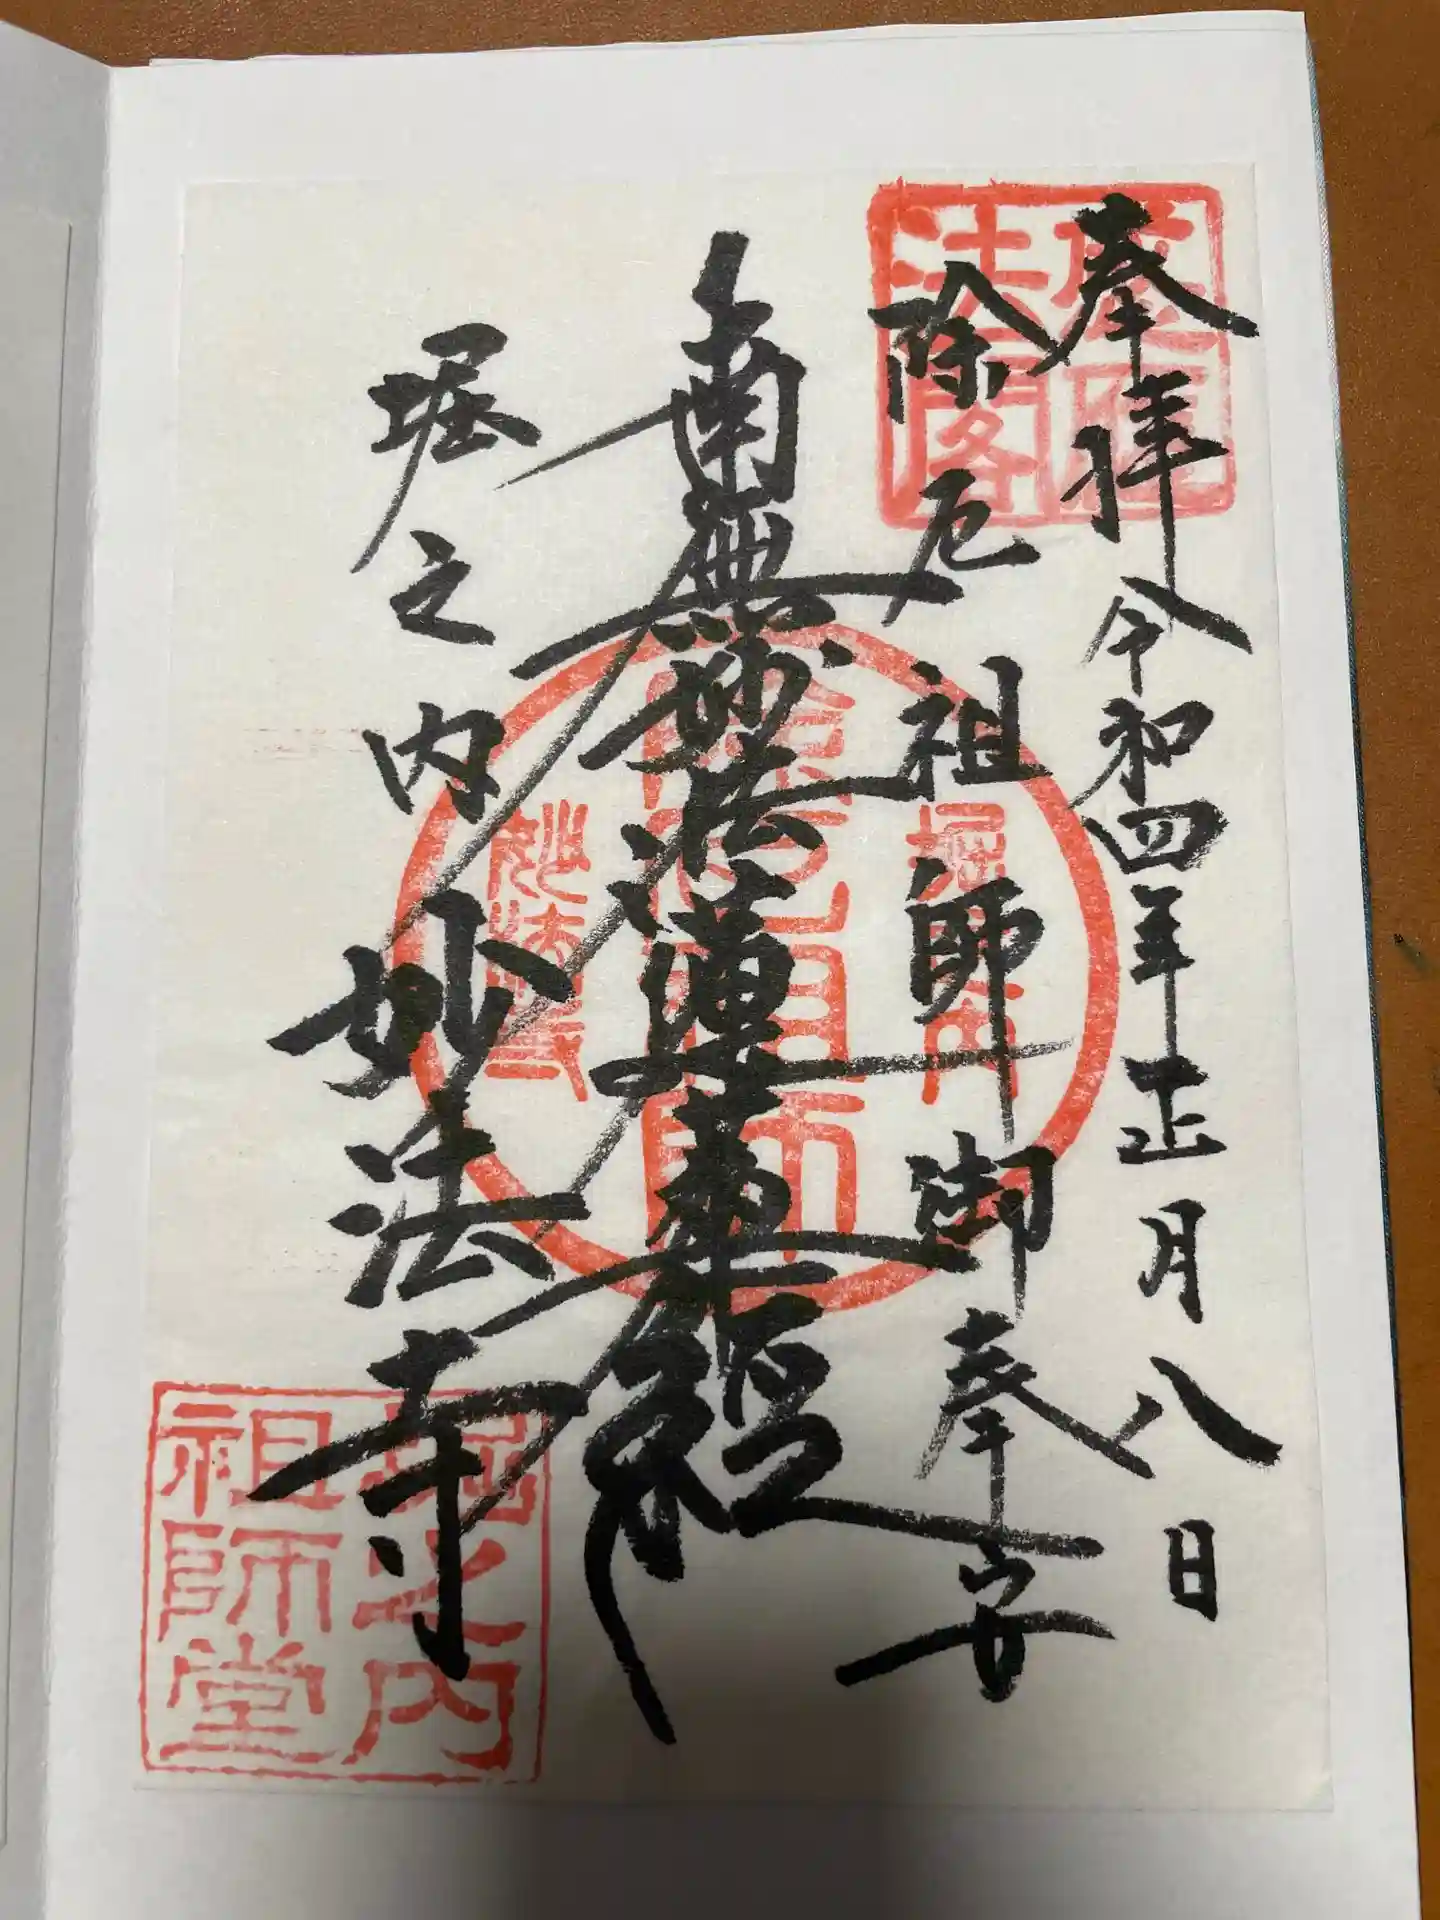 奉拝 令和四年正月八日
除厄祖師御奉安
南無妙法蓮華経
堀之内妙法寺
堀之内
除厄祖師
妙法寺
堀之内
祖師堂